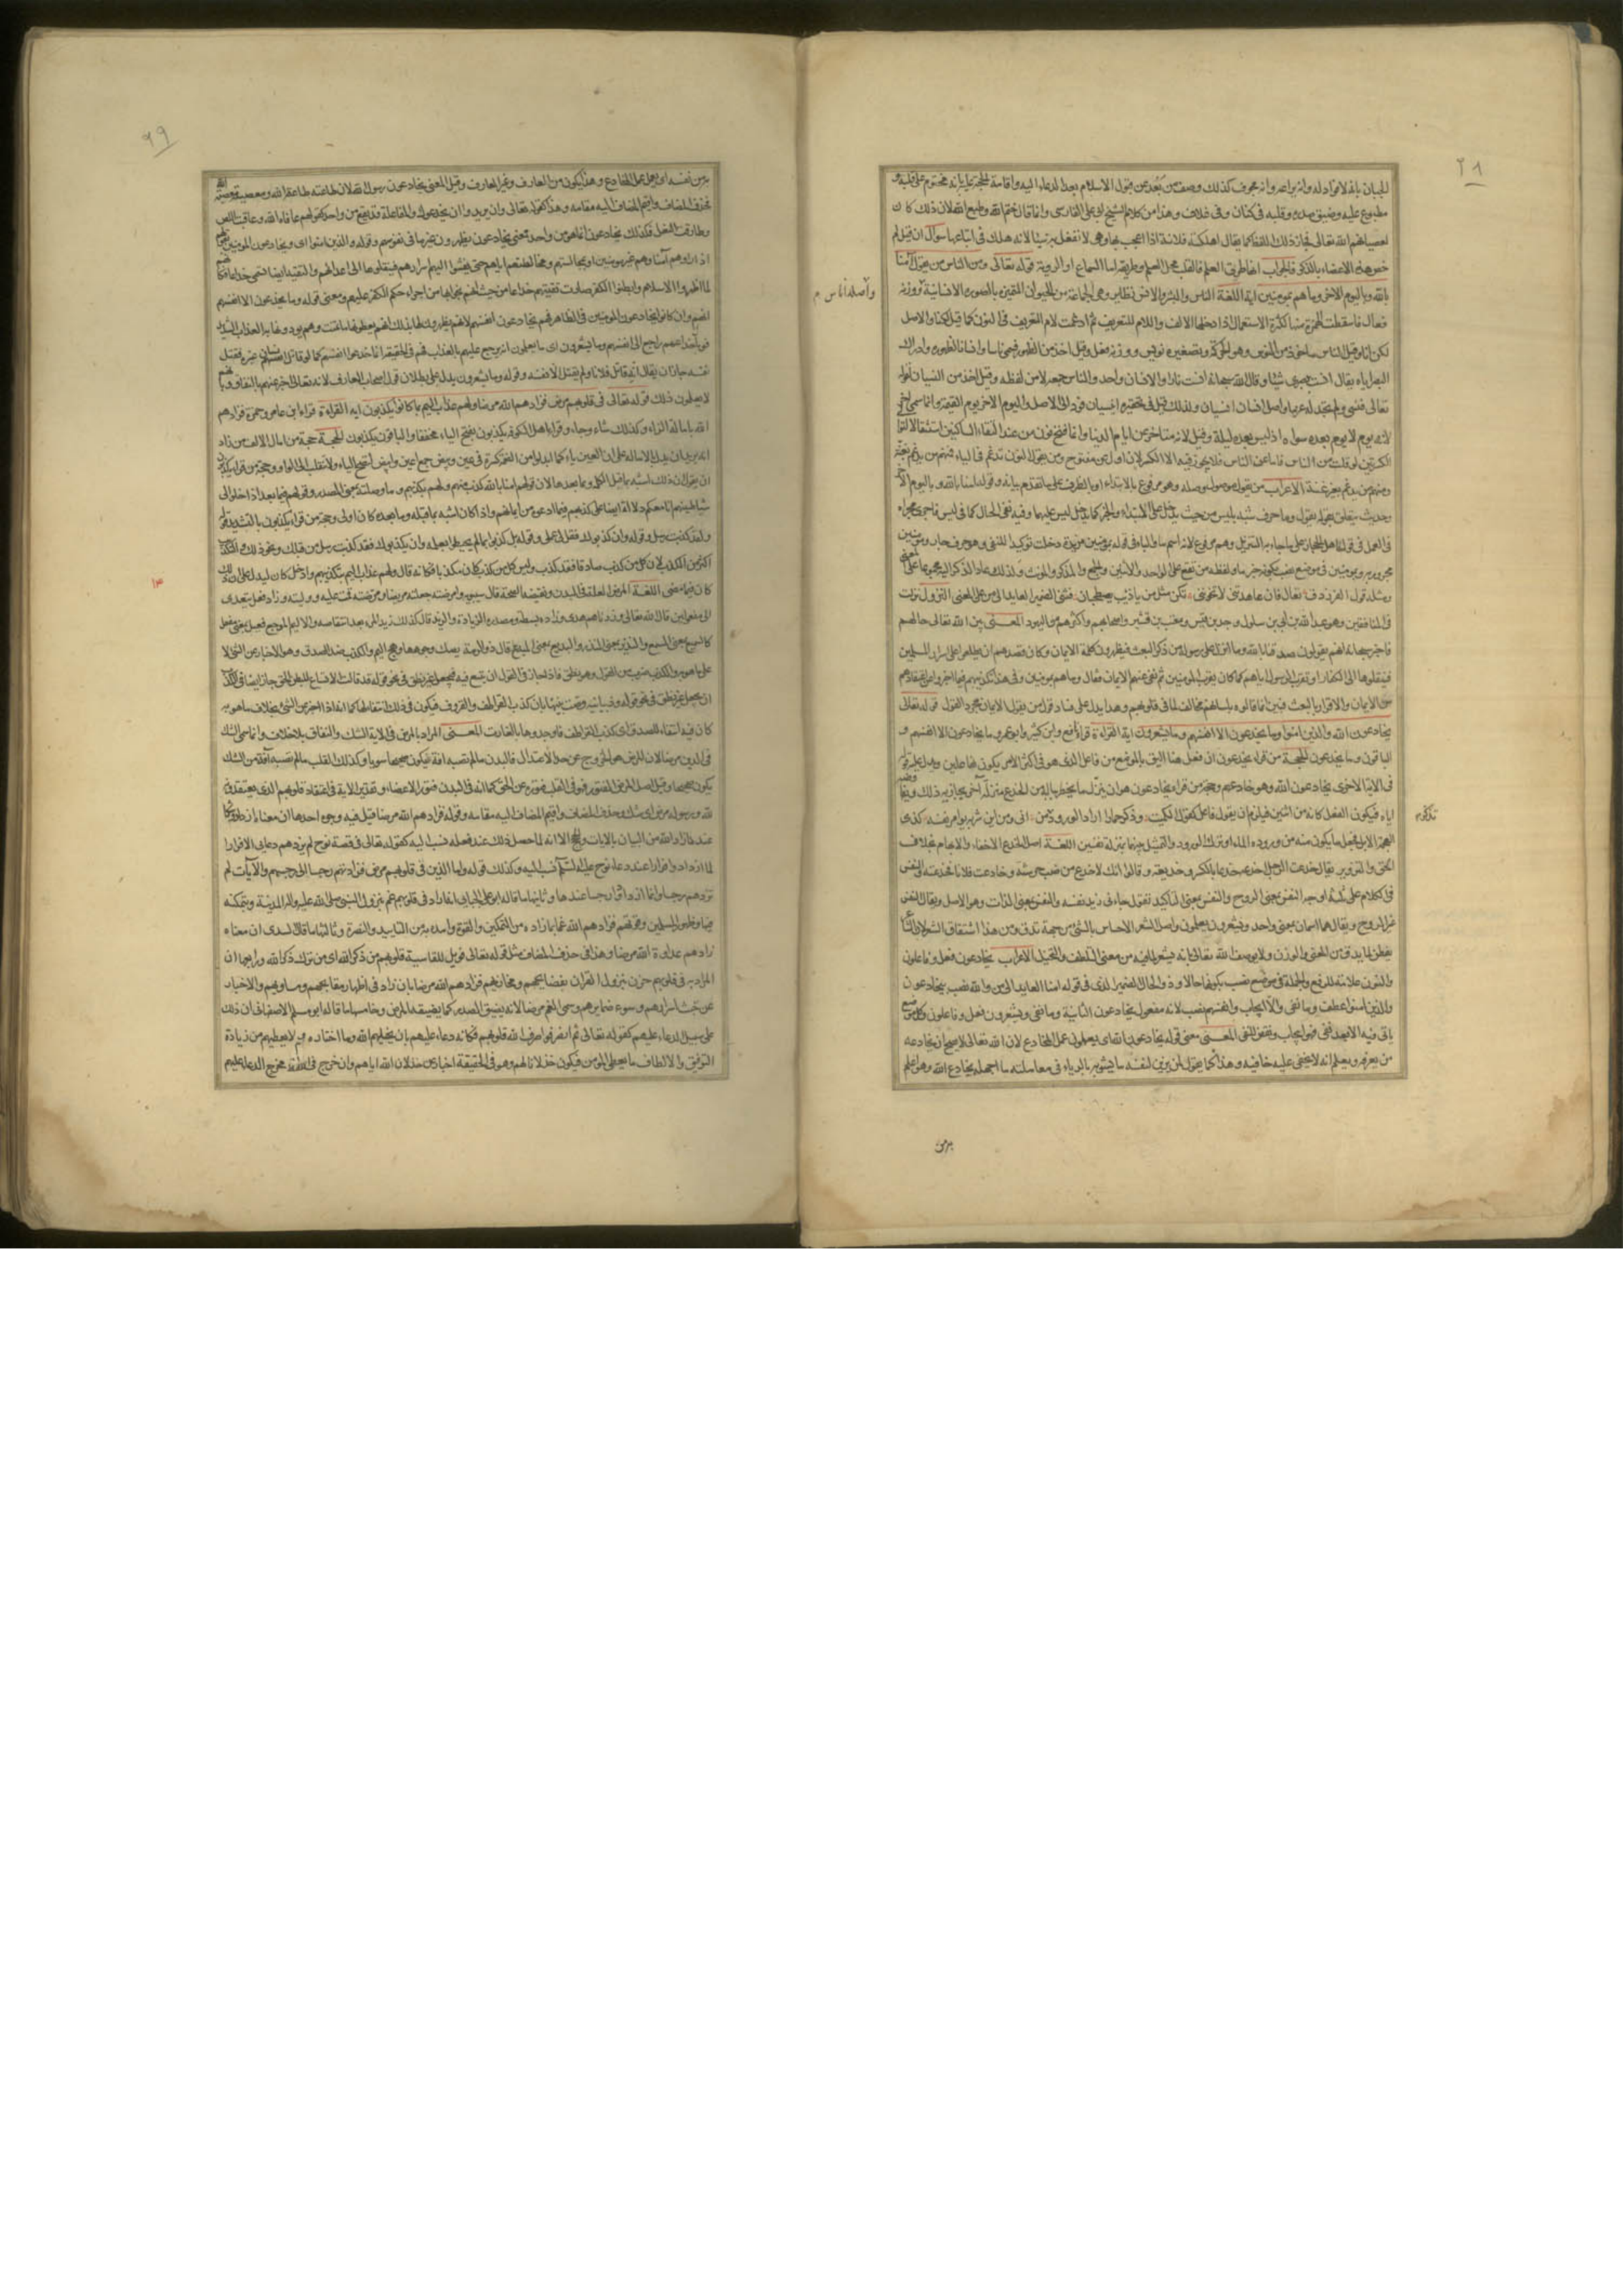 ٢٨
الجبان بانه لا فؤاد له وانه يراعة وانه مجوف كذلك وصف من بعد عن قبول الاسلام بعد الدعاء اليه واقامة الحجة عليه بانه مختوم على قلبه و
مطبوع عليه وضيق صدره وقلبه في كنان وفي غلاف وهذا من كلام الشيخ ابى على الفارسى وانما قال ختم الله وطبع الله لان ذلك كان
لعصيانهم الله تعالى فجاز ذلك اللفظ كما يقال اهلكته فلانة اذا اعجب بها وهى لا تفعل به شيئا لانه هلك في اتباعها سؤال ان قيل لم
خص هذه الاعضاء بالذكر فالجواب انها طريق العلم فالقلب محل العلم وطريقه اما السماع او الروية قوله تعالى ومن الناس من يقول آمنا
بالله وباليوم الاخر وما هم بمومنين اية اللغة الناس والبشر والانس نظاير وهى الجماعة من الحيوان المتميزة بالصورة الانسانية ووزنه
واصله اناس
فعال فاسقطت الهمزة منها لكثرة الاستعمال اذا دخلها الالف واللام للتعريف ثم ادغمت لام التعريف في النون كما قيل لكنا والاصل
لكن انا وقيل الناس ماخوذ من النوس وهو الحركة وتصغيره نويس ووزنه فعل وقيل اخذ من الظهور فسمى ناسا وانسانا لظهوره وادراك
البصر اياه يقال انست ببصرى شيئا وقال الله سبحانه انست نارا والانسان واحد والناس جمعه لا من لفظه وقيل اخذ من النسيان لقوله
تعالى فنسى ولم نجد له عزما واصل انسان انسيان ولذلك قيل في تحقيره انيسيان فرد الى الاصل واليوم الاخر يوم القيمة وانما سمى اخرا
لانه يوم لا يوم بعده سواه اذ ليس بعده ليلة وقيل لانه متاخر عن ايام الدنيا وانما فتح نون من عند التقاء الساكنين استثقالا لتوالى
الكسرتين لو قلت من الناس فاما عن الناس فلا يجوز فيه الا الكسر لان اول عن مفتوح ومن يقول النون تدغم في الياء فمنهم من يدغم بغنة
ومنهم من يدغم بغير غنة الاعراب من يقول موصول وصلة وهو مرفوع بالابتداء او بالظرف على ما تقدم بيانه وقوله امنا بالله وباليوم الاخر
وحديث يتعلق بقوله يقول وما حرف شبه بليس من حيث يدخل على المبتداء والخبر كما يدخل ليس عليهما وفيه نفى الحال كما في ليس فاجرى مجراه
في العمل في قول اهل الحجاز على ما جاء به التنزيل وهم مرفوع لانه اسم ما والباء في قوله بمومنين مزيدة دخلت توكيدا للنفى وهو حرف جار ومومنين
مجرور به وبمومنين في موضع نصب بكونه خبر ما ولفظه من تقع على الواحد والاثنين والجمع والمذكر والمونث ولذلك عاد الذكر اليه مجموعا على المعنى
ومثله قول الفرزدق تعال فان عاهدتنى لا تخوننى نكن مثل من ياذيب يصطحبان فثنى الضمير العايد الى من على المعنى النزول نزلت
في المنافقين وهم عبد الله بن ابى بن سلول وجد بن قيس ومعتب بن قشير واصحابهم واكثرهم من اليهود المعنى بين الله تعالى حالهم
فاخبر سبحانه انهم يقولون صدقنا بالله وما انزل على رسوله من ذكر البعث فيظهرون كلمة الايمان وكان قصدهم ان يطلعوا على اسرار المسلمين
فينقلوها الى الكفار او تقريب الرسول اياهم كما كان يقرب المومنين ثم نفى عنهم الايمان فقال وما هم بمومنين وفي هذا تكذيبهم فيما اخبروا عن اعتقادهم
من الايمان والاقرار بالبعث فبين انما قالوه بلسانهم مخالف لما في قلوبهم وهذا يدل على فساد قول من يقول الايمان مجرد القول قوله تعالى
يخادعون الله والذين امنوا وما يخدعون الا انفسهم وما يشعرون اية القراءة قرا نافع وابن كثير وابو عمرو وما يخادعون الا انفسهم و
الباقون وما يخدعون الحجة من قراء يخدعون ان فعل هنا اليق بالموضع من فاعل الذى هو في اكثر الامر يكون لفاعلين ويدل عليه قوله
في الاية الاخرى يخادعون الله وهو خادعهم وحجة من قراء يخادعون هو ان ينزل ما يخطر بباله من الخدع منزلة اخر يجازيه ذلك ويفاوضه
اياه فيكون الفعل كانه من اثنين فيلزم ان يقول فاعل كقول الكميت وذكر حمارا اراد الورود تذكر من انى ومن اين شربه يوامر نفسه كذى
الهجمة الابل فجعل ما يكون منه من وروده الماء او ترك الورود والتمثيل بينهما بمنزلة نفسين اللغة اصل الخدع الاخفاء والابهام بخلاف
الحق والتزوير يقال خدعت الرجل اخدعه خدعا بالكسر وخديعة وقالوا انك لاخدع من ضب حرشته وخادعت فلانا فخدعته والنفس
في الكلام على ثلثة اوجه النفس بمعنى الروح والنفس بمعنى التاكيد تقول جاءنى زيد نفسه والنفس بمعنى الذات وهو الاصل ويقال النفس
غير الروح ويقال هما اسمان بمعنى واحد ويشعرون يعلمون واصل الشعر الاحساس بالشئ من جهة تدق ومن هذا اشتقاق الشعر لان الشاعر
يفطن لما يدق من المعنى والوزن ولا يوصف الله تعالى بانه يشعر لما فيه من معنى التلطف والتخيل الاعراب يخادعون فعل وفاعلون
والنون علامة الرفع والجملة في موضع نصب بكونها حالا وذو الحال الضمير الذى في قوله امنا العايد الى من والله نصب بيخادعون
والذين امنوا عطف وما نفى والا ايجاب وانفسهم نصب لانه مفعول يخادعون الثانية وما نفى ويشعرون فعل وفاعلون وكل موضع
ياتى فيه الا بعد نفى فهو ايجاب ونقض للنفى المعنى معنى قوله يخادعون الله اى يعملون عمل المخادع لان الله تعالى لا يصح ان يخادعه
من يعرفه ويعلم انه لا يخفى عليه خافيه وهذا كما يقول لمن يزين لنفسه ما يشوبه بالرياء في معاملته ما اجهله يخادع الله وهو اعلم
به من
٢٩
به من نفسه اى يعمل عمل المخادع وهذا يكون من العارف وغير العارف وقيل المعنى يخادعون رسول الله لان طاعته طاعة الله ومعصيته معصية الله
فحذف المضاف واقيم المضاف اليه مقامه وهذا كقوله تعالى وان يريدوا ان يخدعوك والمفاعلة قد تقع من واحد كقولهم عافاه الله وعاقبت اللص
وطارقت النعل فكذلك يخادعون انما هو من واحد فمعنى يخادعون يظهرون غير ما في نفوسهم وقوله والذين امنوا اى ويخادعون المومنين بقولهم
اذا راوهم آمنا وهم غير مومنين او بمجالستهم ومخالطتهم اياهم حتى يفشوا اليهم اسرارهم فينقلوها الى اعدائهم والتقية ايضا تسمى خداعا فكانهم
لما اظهروا الاسلام وابطنوا الكفر صارت تقيتهم خداعا من حيث انهم نجوا بها من اجراء حكم الكفر عليهم ومعنى قوله وما يخدعون الا انفسهم
انهم وان كانوا يخادعون المومنين في الظاهر فهم يخادعون انفسهم لانهم يظهرون لها بذلك انهم يعطونها ما تمنت وهم يوردونها به العذاب الشديد
فوبال خداعهم راجع الى انفسهم وما يشعرون اى ما يعلمون انه يرجع عليهم بالعذاب فهم في الحقيقة انما خدعوا انفسهم كما لو قاتل انسان غيره فقتل
نفسه جاز ان يقال انه قاتل فلانا ولم يقتل الا نفسه وقوله وما يشعرون يدل على بطلان قول اصحاب المعارف لانه تعالى اخبر عنهم بالنفاق وبانهم
لا يعلمون ذلك قوله تعالى في قلوبهم مرض فزادهم الله مرضا ولهم عذاب اليم بما كانوا يكذبون اية القراءة قراء ابن عامر وحمزة فزادهم
الله بامالة الزاء وكذلك شاء وجاء وقراء اهل الكوفة يكذبون بفتح الياء مخففا والباقون يكذبون الحجة حجة من امال الالف من زاد
انه يريد ان يدل بالامالة على ان العين ياء كما ابدلوا من الضمة كسرة في عين وبيض جمع اعين وابيض لتصح الياء ولا تنقلب الى الواو وحجة من قراء يكذبون
ان يقول ان ذلك اشبه بما قبل الكلمة وما بعدها لان قولهم امنا بالله كذب منهم ولهم بكذبهم وما وصلته بمعنى المصدر وقولهم فيما بعد اذا خلوا الى
شياطينهم انا معكم دلالة ايضا على كذبهم فيما ادعوه من ايمانهم واذا كان اشبه بما قبله وما بعده كان اولى وحجة من قراء يكذبون بالتشديد قوله
ولقد كذبت رسل وقوله وان كذبوك فقل لى عملى وقوله بل كذبوا بما لم يحيطوا بعلمه وان يكذبوك فقد كذبت رسل من قبلك ونحو ذلك والتكذيب
اكثر من الكذب لان كل من كذب صادقا فقد كذب وليس كل من كذب كان مكذبا فكانه قال ولهم عذاب اليم بتكذيبهم وادخل كان ليدل على ان ذلك
كان فيما مضى اللغة المرض العلة في البدن ونقيضه الصحة قال سيبويه امرضته جعلته مريضا ومرضته قمت عليه ووليته وزاد فعل يتعدى
الى مفعولين قال الله تعالى وزدناهم هدى وزاده بسطة ومصدره الزيادة والزيد قال كذلك زيد المرء بعد انتقاصه والاليم الموجع فعيل بمعنى مفعل
كالسميع بمعنى المسمع والنذير بمعنى المنذر والبديع بمعنى المبدع قال ذو الرمة يصك وجوهها وهج اليم والكذب ضد الصدق وهو الاخبار عن الشئ لا
على ما هو به والكذب ضرب من القول وهو نطق فاذا جاز في القول ان يتسع فيه فيجعل غير نطق في نحو قوله قد قالت الانساع للبطن الحق جاز ايضا في الكذب
ان يجعل غير نطق في نحو قوله وذبيانية وصت بنيها بان كذب القراطف والقروف فيكون في ذلك انتفاء لها كما انه اذا اخبر عن الشئ بخلاف ما هو به
كان فيه انتفاء للصدق اى كذب القراطف فاوجدوها بالغارت المعنى المراد بالمرض في الاية الشك والنفاق بلا خلاف وانما سمى الشك
في الدين مرضا لان المرض هو الخروج عن حد الاعتدال فالبدن ما لم تصبه افة فيكون صحيحا سويا وكذلك القلب ما لم تصبه آفة من الشك
يكون صحيحا وقيل اصل المرض الفتور فهو في القلب فتوره عن الحق كما انه في البدن فتور الاعضاء وتقدير الاية في اعتقاد قلوبهم الذى يعتقدونه في
الله ورسوله مرض اى شك وحذف المضاف واقيم المضاف اليه مقامه وقوله فزادهم الله مرضا قيل فيه وجوه احدها ان معناه ازدادوا شكا
عند ما زاد الله من البيان بالايات والحجج الا انه لما حصل ذلك عند فعله نسب اليه كقوله تعالى في قصة نوح لم يزدهم دعاى الا فرارا
لما ازدادوا فرارا عند دعاء نوح عليه السلم نسب اليه وكذلك قوله واما الذين في قلوبهم مرض فزادتهم رجسا الى رجسهم والآيات لم
تزدهم رجسا وانما ازدادوا رجسا عندها وثانيها ما قاله ابو على الجبائى انه اراد في قلوبهم غم بنزول النبى صلى الله عليه واله المدينة وبتمكنه
فيها وظهور المسلمين وقوتهم فزادهم الله غما بما زاده من التمكين والقوة وامده به من التاييد والنصرة وثالثها ما قاله السدى ان معناه
زادهم عداوة الله مرضا وهذا في حذف المضاف مثل قوله تعالى فويل للقاسية قلوبهم من ذكر الله اى من ترك ذكر الله ورابعها ان
المراد به في قلوبهم حزن بنزول القران بفضائحهم ومخازيهم فزادهم الله مرضا بان زاد في اظهار مقابحهم ومساويهم والاخبار
عن خبث اسرارهم وسوء ضمايرهم وسمى الغم مرضا لانه يضيق الصدر كما يضيقه المرض وخامسها ما قاله ابو مسلم الاصفهانى ان ذلك
على سبيل الدعاء عليهم كقوله تعالى ثم انصرفوا صرف الله قلوبهم فكانه دعاء عليهم بان يخليهم الله وما اختاروه ولا يعطيهم من زيادة
التوفيق والالطاف ما يعطى المومن فيكون خذلانا لهم وهو في الحقيقة اخبار عن خذلان الله اياهم وان خرج في اللفظ مخرج الدعاء عليهم